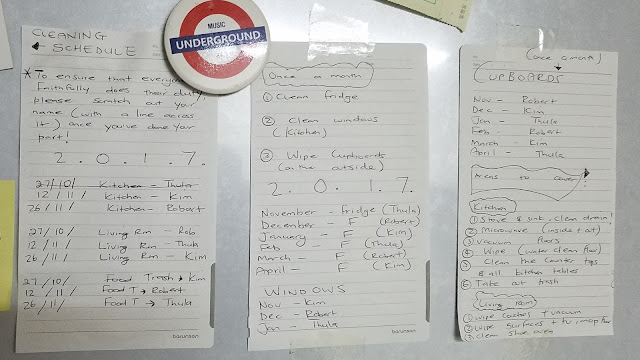 CLEANING
SCHEDULE
* To ensure that everyone
faithfully does their duty,
please scratch out your
name (with a line across
it) once you've done your
part!
2.0.1.7.
27/10/ Kitchen - Thula
12/11/ Kitchen - Kim
26/11/ Kitchen - Robert
27/10/ Living Rm - Rob
12/11/ Living Rm - Thula
26/11/ Living Rm - Kim
27/10/ Food Trash → Kim
12/11/ Food T → Robert
26/11/ Food T → Thula
barunson
MUSIC
UNDERGROUND
Once a month
① Clean fridge
② Clean windows
(Kitchen)
③ Wipe Cupboards
(on the outside)
2.0.1.7.
November - fridge (Thula)
December - F (Robert)
January - F (Kim)
Feb - F (Thula)
March - F (Robert)
April - F (Kim)
WINDOWS
Nov - Kim
Dec - Robert
Jan - Thula
barunson
(once a month)
CUPBOARDS
Nov - Robert
Dec - Kim
Jan - Thula
Feb - Robert
March - Kim
April - Thula
Areas to cover
Kitchen
① Stove & sink, clean drain!
② Microwave (inside + out)
③ Vacuum floors
④ Wipe (water clean floor)
⑤ Clean the counter tops
& all kitchen tables
⑥ Take out trash
Living room
① Wipe couches + vacuum
② Wipe surfaces + tv, mop floor
③ Clean shoe area